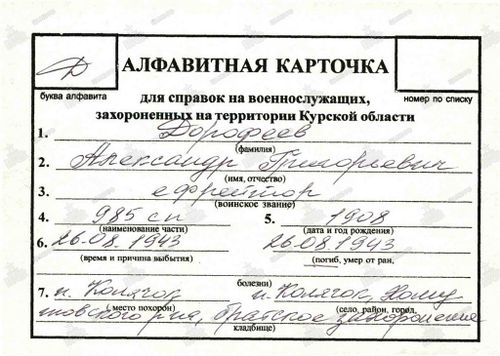 Д
АЛФАВИТНАЯ КАРТОЧКА
буква алфавита
номер по списку
для справок на военнослужащих,
захороненных на территории Курской области
1. Дорофеев
(фамилия)
2. Александр Григорьевич
(имя, отчество)
3. ефрейтор
(воинское звание)
4. 985 сп 5. 1908
(наименование части) (дата и год рождения)
6. 26.08.1943 26.08.1943
(время и причина выбытия) (погиб, умер от ран,
болезни)
7. п. Колячок п. Колячок, Хому
( место похорон) (село, район, город,
товского р-на, братское захоронение
кладбище)